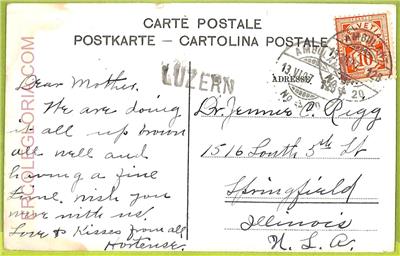 CARTE POSTALE
POSTKARTE - CARTOLINA POSTALE
ADRESSE
LUZERN
HELVETIA
10
AMBULANT
13 VI
No 20
Dear Mother.
We are doing
it all up brown
all well and
having a fine
time. wish you
were with us.
Love & Kisses from all
Hortense.
Dr. Jennie C. Rigg
1516 South 5th St
Springfield
Illinois
U. S. A.